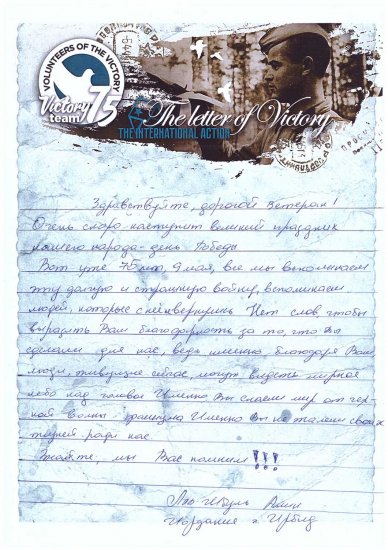 VOLUNTEERS OF THE VICTORY
Victory 75
team
The letter of Victory
THE INTERNATIONAL ACTION
Здравствуйте, дорогой Ветеран!
Очень скоро наступит великий праздник
нашего народа - день Победы
Вот уже 75 лет, 9 мая, все мы вспоминаем
эту долгую и страшную войну, вспоминаем
людей, которые с неё не вернулись. Нет слов, чтобы
выразить Вам благодарность за то, что Вы
сделали для нас, ведь именно благодаря Вам
люди, живущие сейчас, могут видеть мирное
небо над головой Именно Вы спасли мир от чёр
ной фашизма Именно Вы не жалели своих
ради нас.
Знайте, мы Вас помним!!!
Иордания г. Ирбид